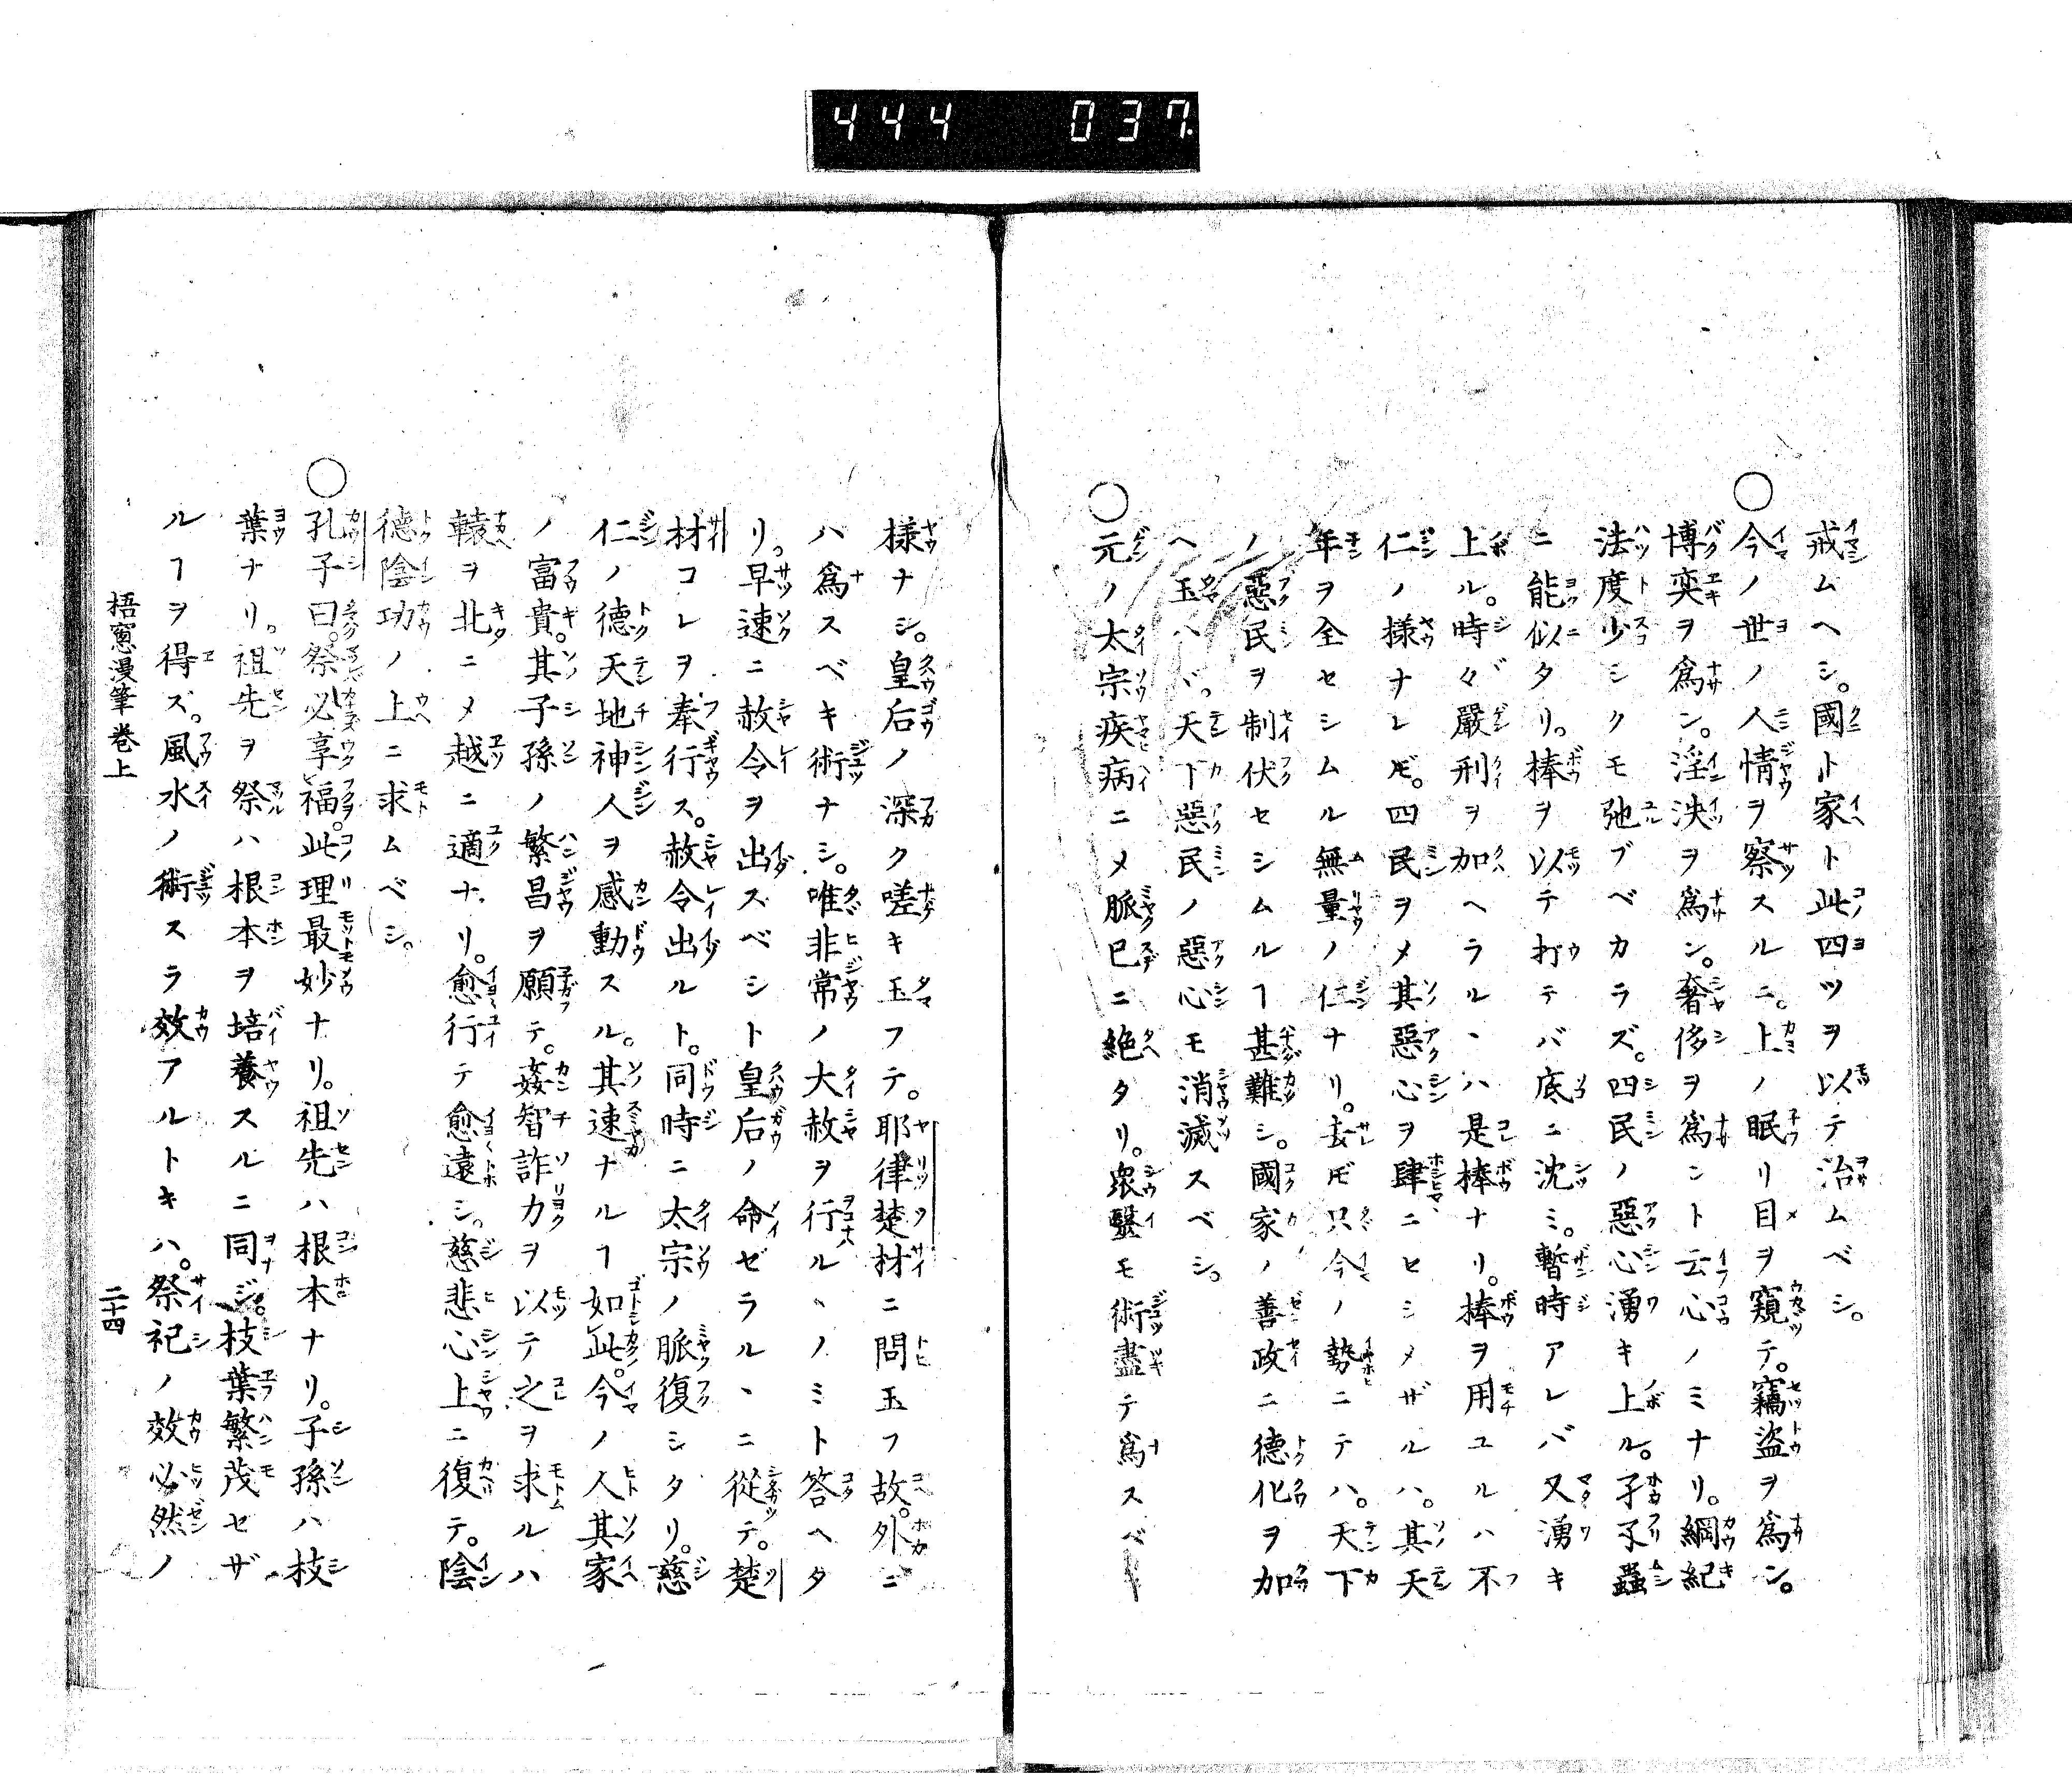 444 037.
戒ムヘシ。國ト家ト此四ツヲ以テ治ムベシ。
○今ノ世ノ人情ヲ察スルニ。上ノ眠リ目ヲ窺テ。竊盜ヲ爲ン。
博奕ヲ爲ン。淫泆ヲ爲ン。奢侈ヲ爲ント云心ノミナリ。綱紀
法度少シクモ弛ブベカラズ。四民ノ惡心湧キ上ル。孑孑蟲
ニ能似タリ。棒ヲ以テ打テバ底ニ沈ミ。暫時アレバ又湧キ
上ル。時々嚴刑ヲ加ヘラルヽハ是棒ナリ。棒ヲ用ユルハ不
仁ノ樣ナレ𪜈。四民ヲメ其惡心ヲ肆ニヒシメザルハ。其天
年ヲ全セシムル無量ノ仁ナリ。去𪜈只今ノ勢ニテハ。天下
ノ惡民ヲ制伏セシムルヿ甚難シ。國家ノ善政ニ德化ヲ加
ヘ玉ハヾ。天下惡民ノ惡心モ消滅スベシ。
○元ノ太宗疾病ニメ脈已ニ絶タリ。衆醫モ術盡テ爲スベ
樣ナシ。皇后ノ深ク嗟キ玉フテ。耶律楚材ニ問玉フ故。外ニ
ハ爲スベキ術ナシ。唯非常ノ大赦ヲ行ルヽノミト答ヘタ
リ。早速ニ赦令ヲ出スベシト皇后ノ命ゼラルヽニ從テ。楚
材コレヲ奉行ス。赦令出ルト。同時ニ太宗ノ脈復シタリ。慈
仁ノ德天地神人ヲ感動スル。其速ナルヿ如此。今ノ人其家
ノ富貴。其子孫ノ繁昌ヲ願テ。姦智詐力ヲ以テ之ヲ求ルハ
轅ヲ北ニメ越ニ適ナリ。愈行テ愈遠シ。慈悲心上ニ復テ。陰
德陰功ノ上ニ求ムベシ。
○孔子曰。祭必享福。此理最妙ナリ。祖先ハ根本ナリ。子孫ハ枝
葉ナリ。祖先ヲ祭ハ根本ヲ培養スルニ同ジ。枝葉繁茂セザ
ルヿヲ得ズ。風水ノ術スラ效アルトキハ。祭祀ノ效必然ノ
梧窻漫筆卷上 二十四